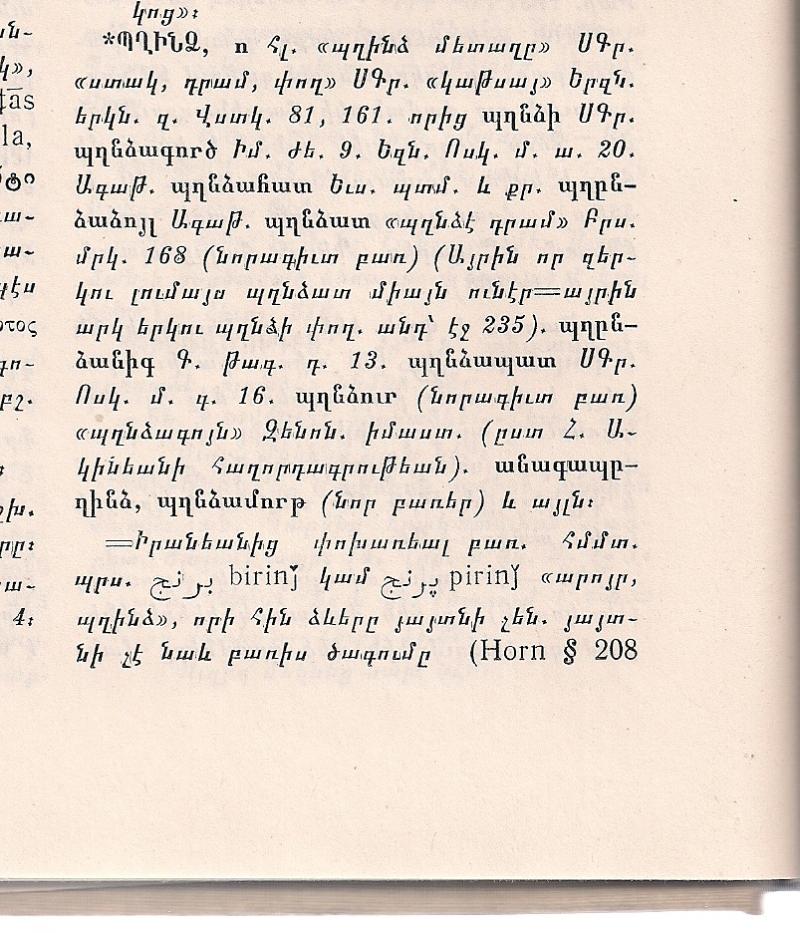 կոց»։
*ՊՂԻՆՁ, ո հլ. «պղինձ մետաղը» ՍԳր.
«ստակ, դրամ, փող» ՍԳր. «կաթսայ» Երզն.
երկն. զ. Վստկ. 81, 161. որից պղնձի ՍԳր.
պղնձագործ Իմ. ժե. 9. Եզն. Ոսկ. մ. ա. 20.
Ագաթ. պղնձահատ Եւս. պտմ. և քր. պղըն-
ձաձոյլ Ագաթ. պղնձատ «պղնձէ դրամ» Բրս.
մրկ. 168 (նորագիւտ բառ) (Այրին որ զեր-
կու լումայս պղնձատ միայն ունէր=այրին
արկ երկու պղնձի փող. անդ՝ էջ 235). պղըն-
ձանիգ Գ. թագ. դ. 13. պղնձապատ ՍԳր.
Ոսկ. մ. դ. 16. պղնձուր (նորագիւտ բառ)
«պղնձագոյն» Զենոն. իմաստ. (ըստ Հ. Ա-
կինեանի հաղորդագրութեան). անագապը-
ղինձ, պղնձամորթ (նոր բառեր) և այլն։
=Իրանեանից փոխառեալ բառ. հմմտ.
պրս. برنج birinǰ կամ پرنج pirinǰ «արոյր,
պղինձ», որի հին ձևերը յայտնի չեն. յայտ-
նի չէ նաև բառիս ծագումը (Horn § 208
ն-
կ»,
ṭās
la,
ա-
ա-
պէս
οτος
գո-
բշ.
խ.
րը։
ա-
4։